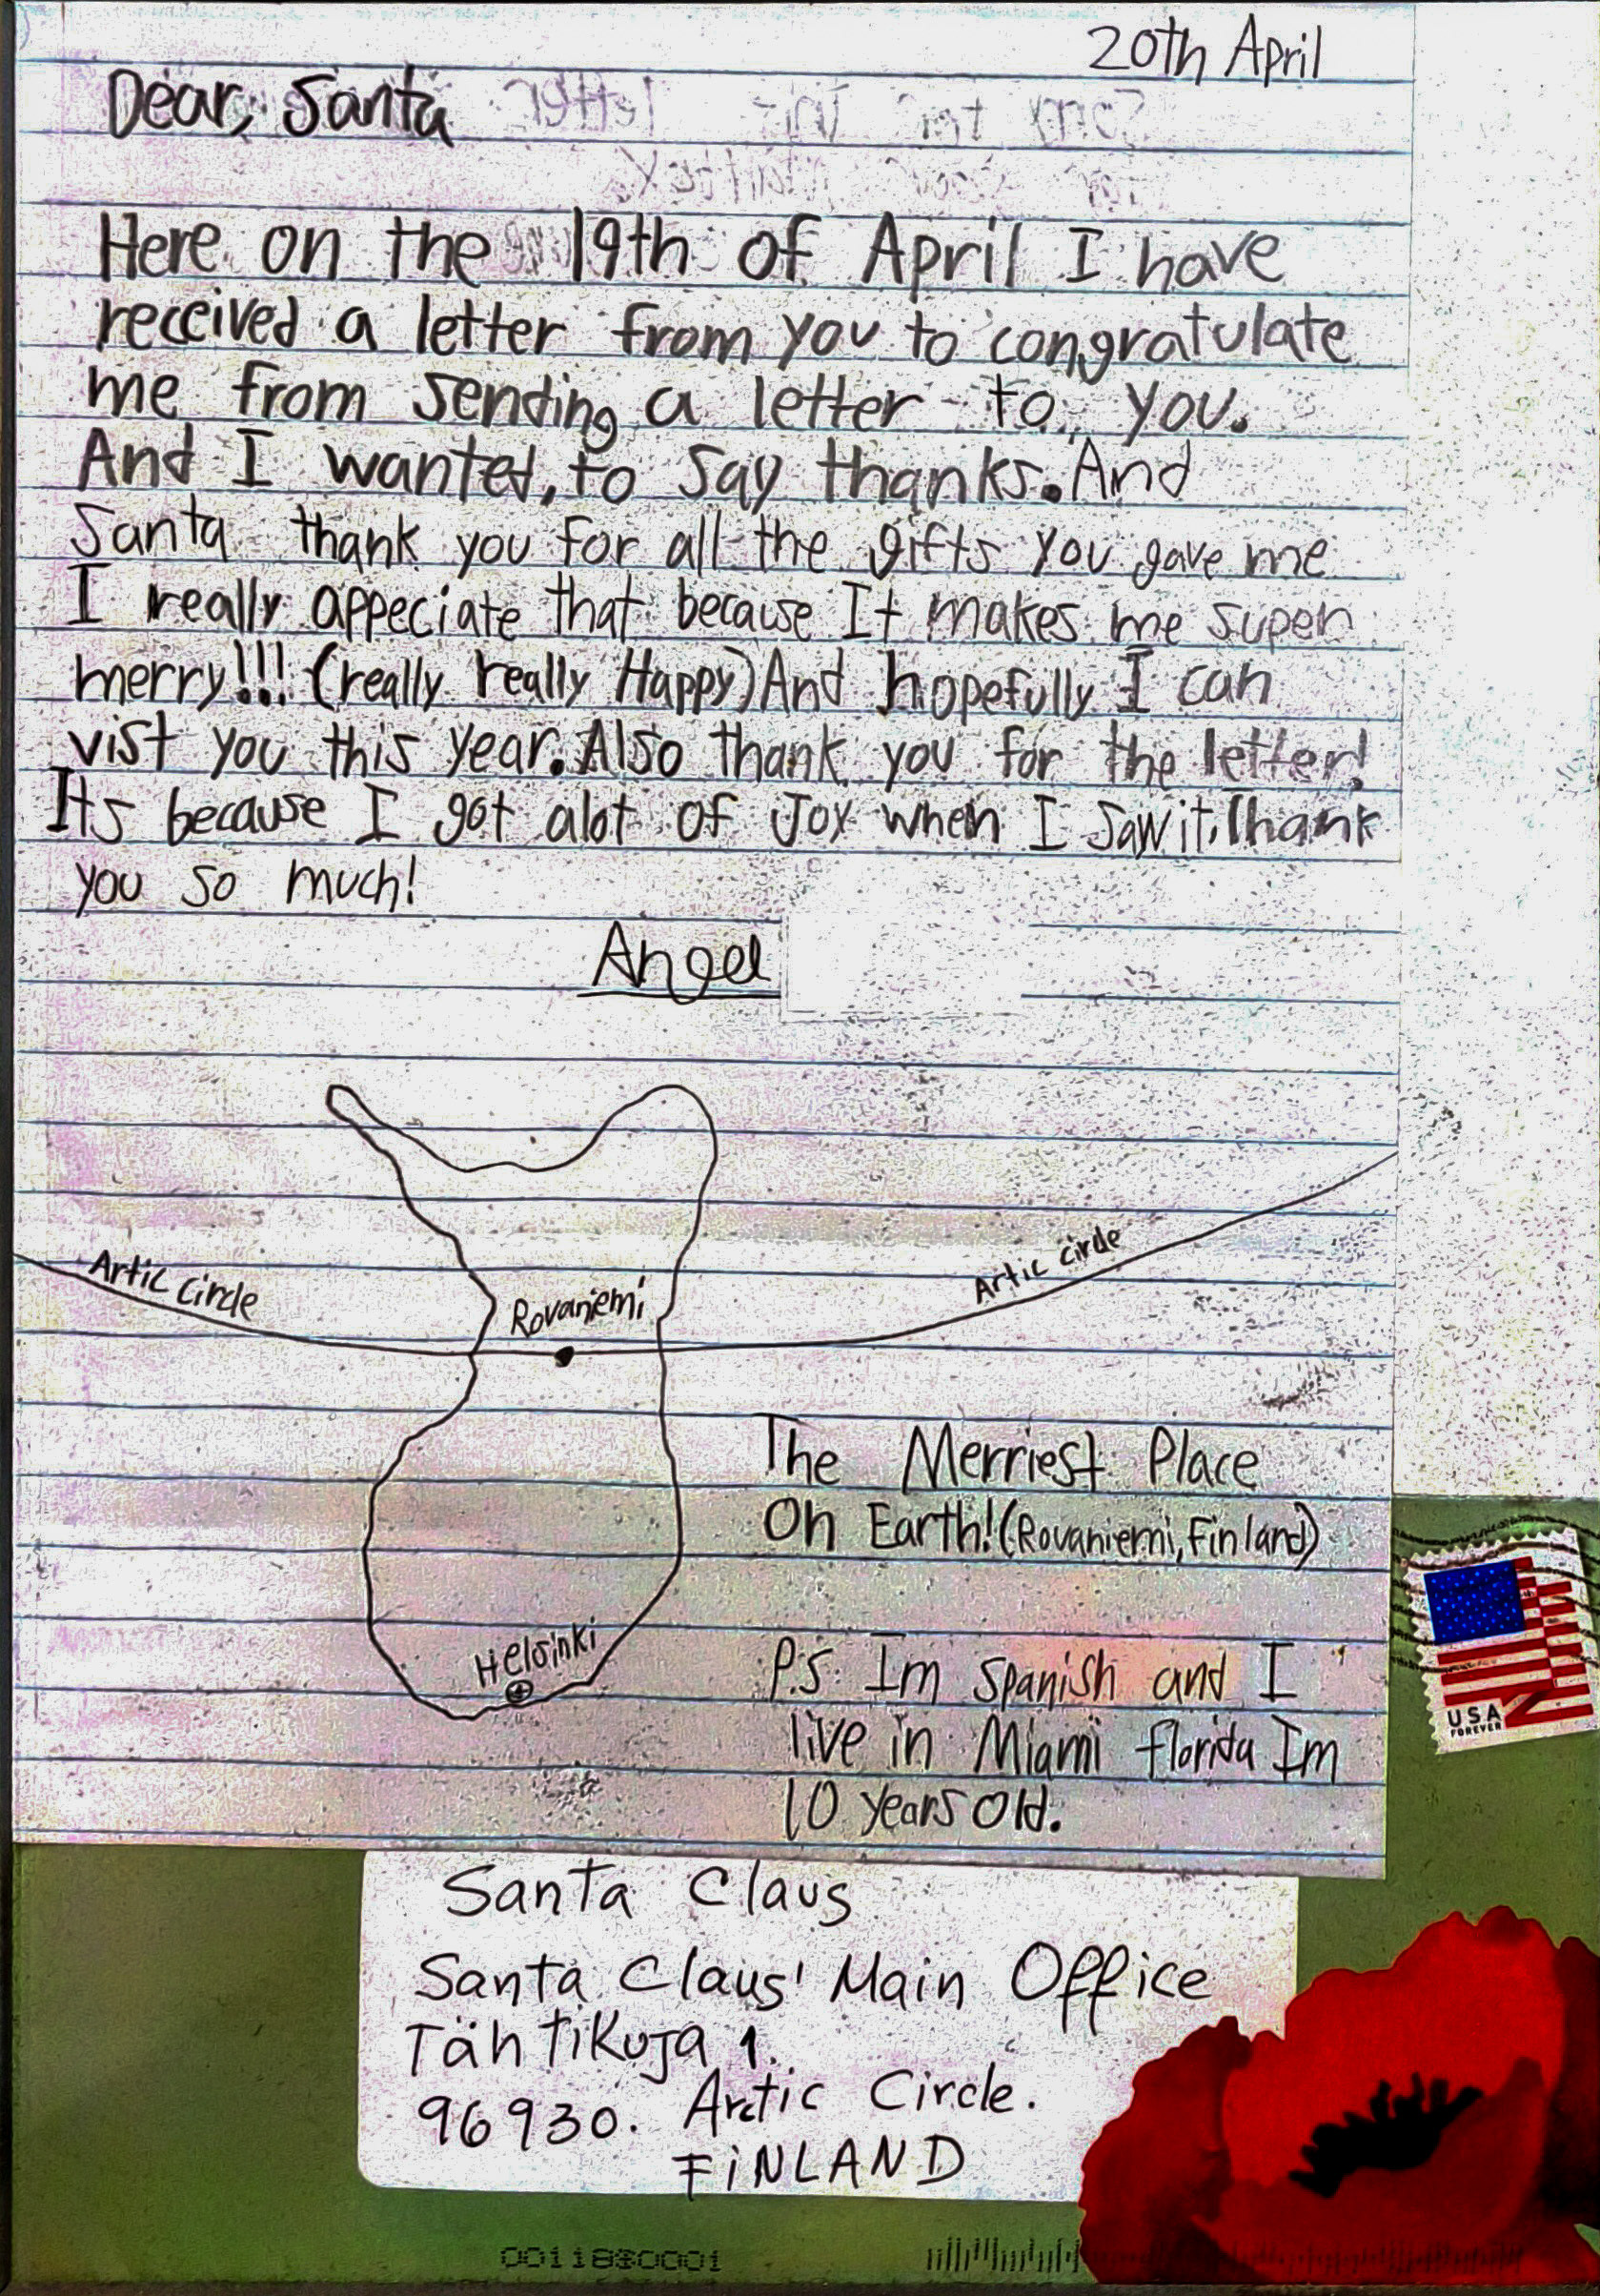 20th April
Dear, Santa
Here on the 19th of April I have
received a letter from you to congratulate
me from sending a letter to you.
And I wanted, to say thanks. And
Santa thank you for all the gifts you gave me
I really appeciate that because It makes me super
merry!!! (really really Happy) And hopefully I can
vist you this year. Also thank you for the letter!
Its because I got alot of Joy when I saw it. Thank
you so much!
Angel
Artic circle
Rovaniemi
Artic circle
The Merriest Place
On Earth! (Rovaniemi, Finland)
Helsinki
P.S. Im spanish and I
live in Miami florida Im
10 years old.
USA
FOREVER
Santa Claus
Santa Claus' Main Office
Tähtikuja 1.
96930. Arctic Circle.
FiNLAND